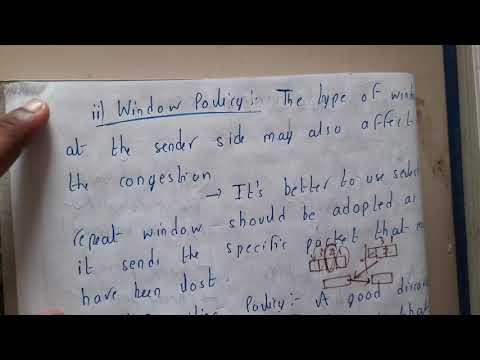 ii) Window Policy :- The type of
at the sender side may also affect
the congestion
→ It's better to use
repeat window should be adopted as
it sends the specific packet that
have been lost.
Policy :- A good